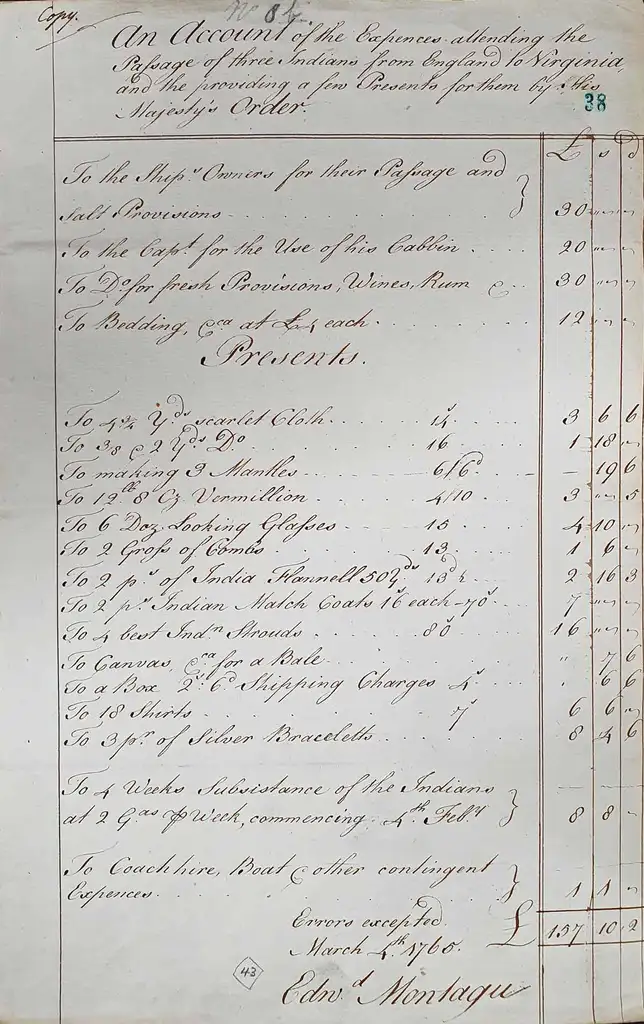 Copy.
No 8 b.
An Account of the Expences attending the
Passage of three Indians from England to Virginia,
and the providing a few Presents for them by His
Majesty's Order.
38
£ s d
To the Ship's Owners for their Passage and
Salt Provisions 30 " "
To the Capt. for the Use of his Cabbin 20 " "
To Do for fresh Provisions, Wines, Rum &c 30 " "
To Bedding, &ca at £4 each 12 " "
Presents.
To 4 3/4 Yds scarlet Cloth 14s 3 6 6
To 3/8 & 2 Yds Do 16 1 18 "
To making 3 Mantles 6/6d — 19 6
To 12 lb 8 Oz Vermillion 4/10 3 " 5
To 6 Doz. Looking Glasses 15 4 10 "
To 2 Gross of Combs 13 1 6 "
To 2 ps of India Flannell 50 Yds 13d ½ 2 16 3
To 2 ps Indian Match Coats 16 each 70s 7 " "
To 4 best Indn Strouds 80 16 " "
To Canvas, &ca for a Bale " 7 6
To a Box 2s 6d Shipping Charges 4s " 6 6
To 18 Shirts 7s 6 6 "
To 3 pr of Silver Braceletts 8 4 6
To 4 Weeks Subsistance of the Indians
at 2 Gas ⅌ Week, commencing 4th Feby 8 8 "
To Coach hire, Boat & other contingent
Expences 1 1 "
Errors excepted £ 157 10 2
March 4th 1765.
43
Edwd Montagu